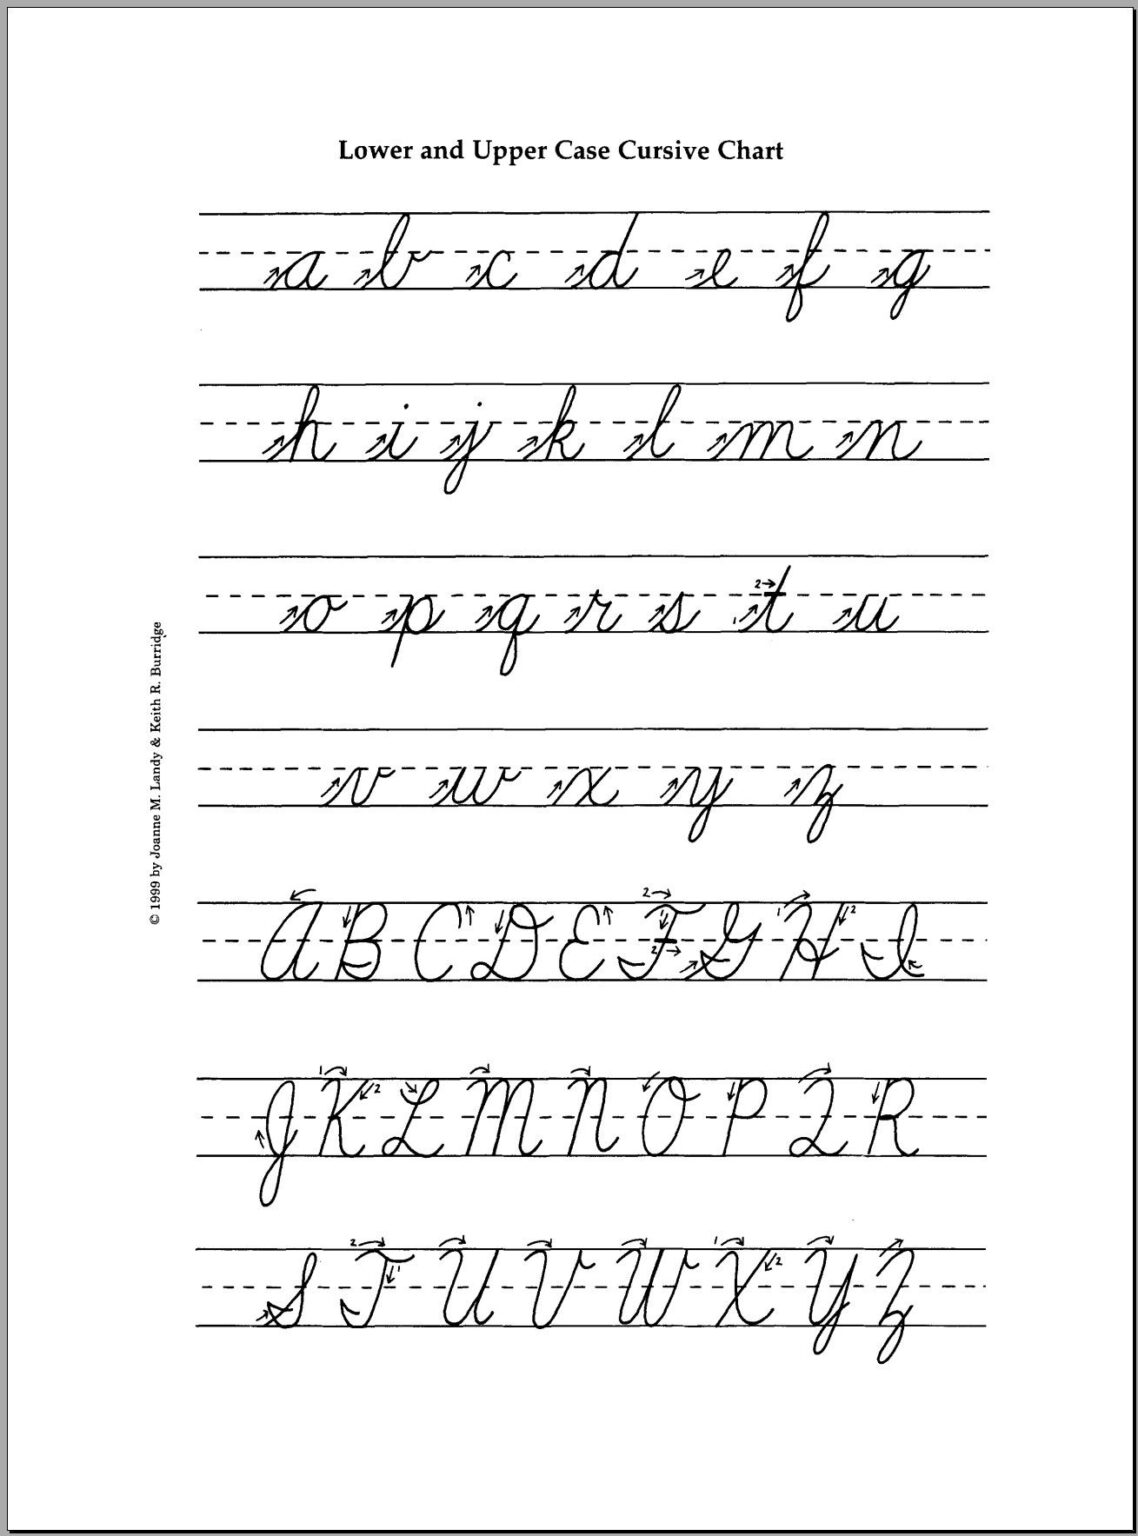 Lower and Upper Case Cursive Chart
a b c d e f g
h i j k l m n
o p q r s t u
v w x y z
A B C D E F G H I
J K L M N O P Q R
S T U V W X Y Z
© 1999 by Joanne M. Landy & Keith R. Burridge